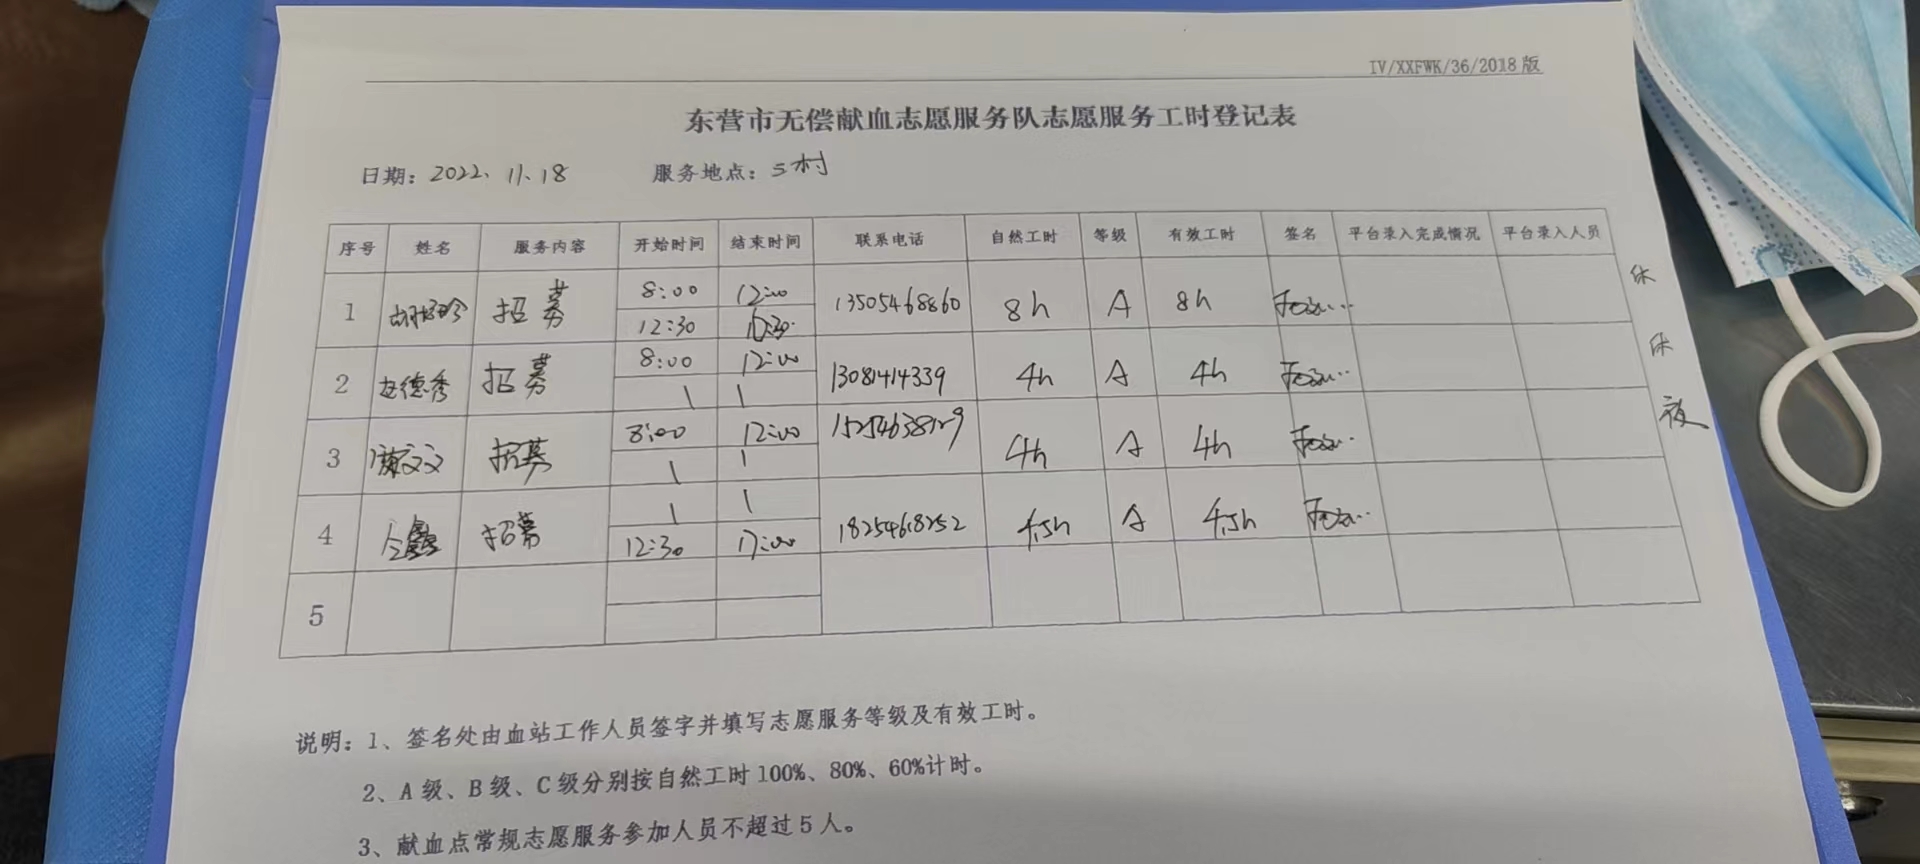 IV/XXFWK/36/2018版
东营市无偿献血志愿服务队志愿服务工时登记表
日期：2022.11.18 服务地点：村
序号 姓名 服务内容 开始时间 结束时间 联系电话 自然工时 等级 有效工时 签名 平台录入完成情况 平台录入人员
1 招募 8:00 12:00 13505468860 8h A 8h 休
12:30
2 赵德秀 招募 8:00 12:00 13081414339 4h A 4h 休
\ \
3 文文 招募 8:00 12:00 4h A 4h 夜
\ \
4 招募 \ \ 18254618252 4.5h A 4.5h
12:30 17:00
5
说明：1、签名处由血站工作人员签字并填写志愿服务等级及有效工时。
2、A级、B级、C级分别按自然工时100%、80%、60%计时。
3、献血点常规志愿服务参加人员不超过5人。